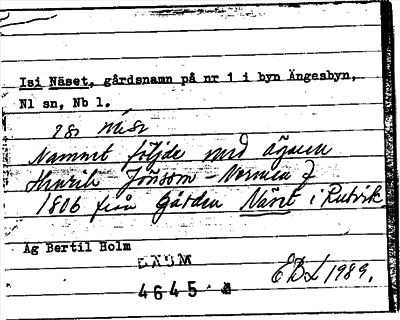 Isi Näset, gårdsnamn på nr 1 i byn Ängesbyn,
Nl sn, Nb l.
Namnet följde med ägaren
Henrik Jönsson
1806 från gården Näset i Rutvik
Ag Bertil Holm
DAUM
4645
EBL 1989.